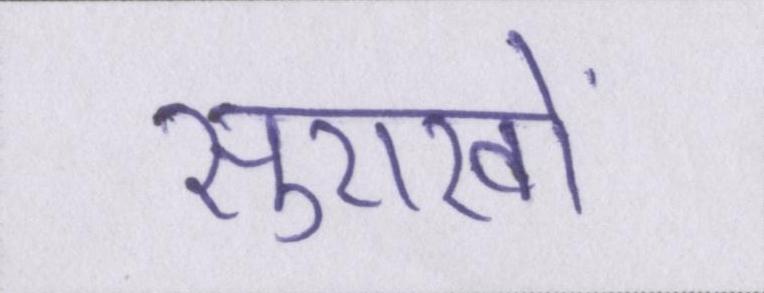 सुराखों